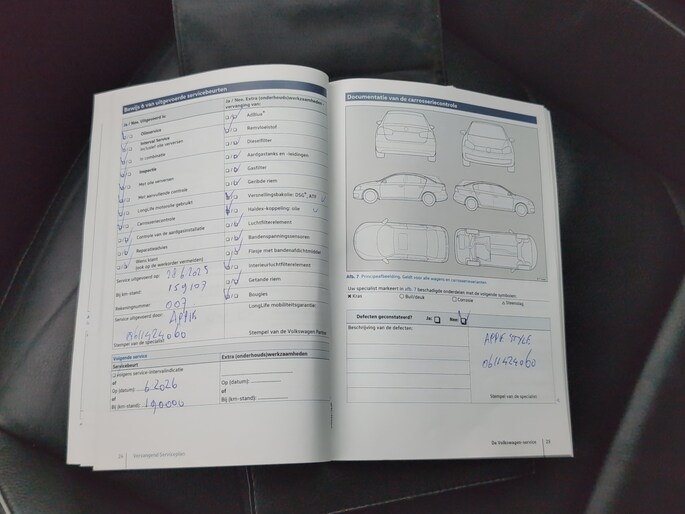 Bewijs & van uitgevoerde servicebeurten
Ja / Nee Uitgevoerd is
Olieservice
Interval service
In combinatie
Inspectie
Met olie verversen
Met aanvullende controle
LongLife motorolie gebruikt
Carrosseriecontrole
Controle van de aardgasinstallatie
Reparatieadvies
Wens klant
(ook op de werkorder vermelden)
Service uitgevoerd op:
Bij km-stand: 159107
Rekeningnummer: 007
Service uitgevoerd door:
0611424060
Stempel van de specialist
Volgende service
Servicebeurt
volgens service-intervalindicatie
of
Op (datum): 6 2026
of
Bij (km-stand): 190.000
24 Vervangend Serviceplan
Ja / Nee Extra (onderhouds)werkzaamheden
vervanging van:
AdBlue®
Remvloeistof
Dieselfilter
Aardgastanks en -leidingen
Gasfilter
Geribde riem
Versnellingsbakolie: DSG®, ATF
Haldex-koppeling: olie
Luchtfilterelement
Bandenspanningssensoren
Flesje met bandenafdichtmiddel
Interieurluchtfilterelement
Getande riem
Bougies
LongLife mobiliteitsgarantie
Stempel van de Volkswagen Partner
Extra (onderhouds)werkzaamheden
Op (datum):
of
Bij (km-stand):
Documentatie van de carrosseriecontrole
Afb. 7
Uw specialist markeert in afb. 7 beschadigde onderdelen met de volgende symbolen:
Kras
Buil/deuk
Corrosie
Steenslag
Defecten geconstateerd? Ja: Nee:
Beschrijving van de defecten:
APPIE STYLE
0611424060
Stempel van de specialist
De Volkswagen-service 25